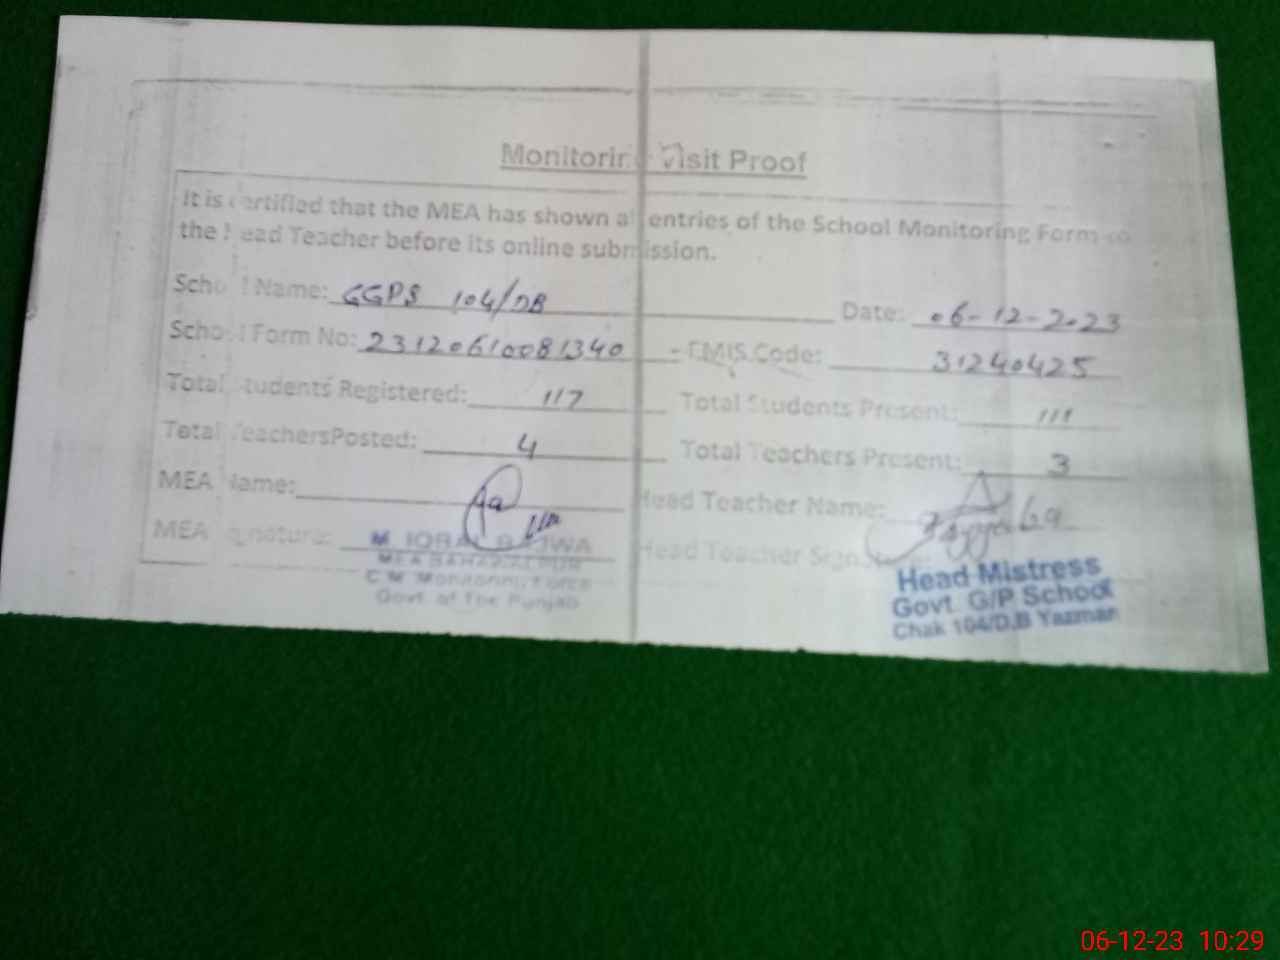 Monitoring Visit Proof
It is certified that the MEA has shown all entries of the School Monitoring Form to
the Head Teacher before its online submission.
School Name: GGPS 104/DB Date: 06-12-2023
School Form No: 23120610081340 EMIS Code: 31240425
Total Students Registered: 117 Total Students Present: 111
Total TeachersPosted: 4 Total Teachers Present: 3
MEA Name: Head Teacher Name:
MEA Signature: Head Teacher Sign
M. IQBAL BAJWA
MEA BAHAWALPUR
C M Monitoring Force
Govt. of The Punjab
Head Mistress
Govt. G/P School
Chak 104/D.B Yazman
06-12-23 10:29